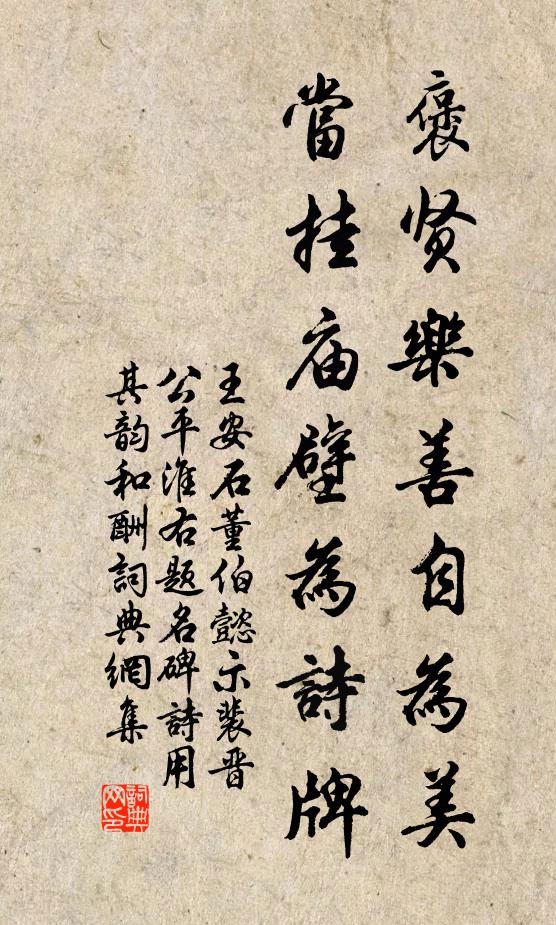 褒贤樂善自為美
當挂庙壁為詩牌
王安石董伯懿示裴晋
公平淮右题名碑詩用
其韵和酬詞典網集
詞典
网印